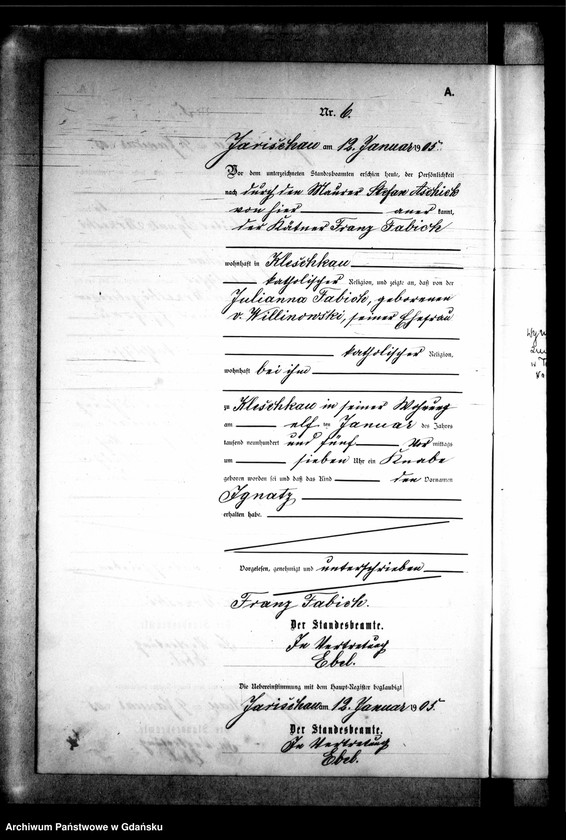 A.
Nr. 6.
Jarischau am 12. Januar 1905.
Vor dem unterzeichneten Standesbeamten erschien heute, der Persönlichkeit
nach durch den Maurer Stefan Aschick
von hier anerkannt,
der Kätner Franz Fabich
wohnhaft in Kleschkau
katholischer Religion, und zeigte an, daß von der
Julianna Fabich, geborenen
v. Willinowski, seiner Ehefrau
katholischer Religion,
wohnhaft bei ihm
zu Kleschkau in seiner Wohnung
am elf ten Januar des Jahres
tausend neunhundert und fünf Vor mittags
um sieben Uhr ein Knabe
geboren worden sei und daß das Kind den Vornamen
Ignatz
erhalten habe.
Vorgelesen, genehmigt und unterschrieben
Franz Fabich.
Der Standesbeamte.
In Vertretung
Ebel.
Die Uebereinstimmung mit dem Haupt-Register beglaubigt
Jarischau am 12. Januar 1905.
Der Standesbeamte.
In Vertretung
Ebel.
Archiwum Państwowe w Gdańsku